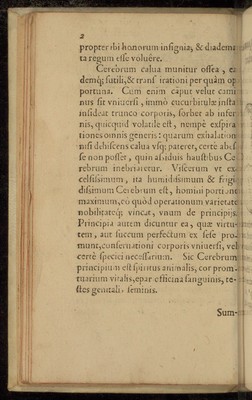 2
propter ibi honorum insignia, & diadema
ta regum esse voluêre.
Cerebrum calua munitur ossea, ea
demq; sutili, & transpirationi per quàm op
portuna. Cùm enim càput velut cami
nus sit vniuersi, immò cucurbitulæ instar
insideat trunco corporis, sorbet ab infer
nis, quicquid volatile est, nempè expira
tiones omnis generis: quarum exhalation
nisi dehiscens calua vsq; pateret, certè abes
se non posset, quin assiduis haustibus Ce
rebrum inebriaretur. Viscerum vt ex
celsissimum, ita humidissimum & frigi
dissimum Cerebrum est, homini portione
maximum, eò quòd operationum varietate
nobilitateq; vincat, vnum de principijs.
Principia autem dicuntur ea, quæ virtu-
tem, aut succum perfectum ex sese pro-
munt, conseruationi corporis vniuersi, vel
certè speciei necessarium. Sic Cerebrum
principium est spiritus animalis, cor prom-
tuarium vitalis, epar officina sanguinis, te-
stes genitalis seminis.
Sum-